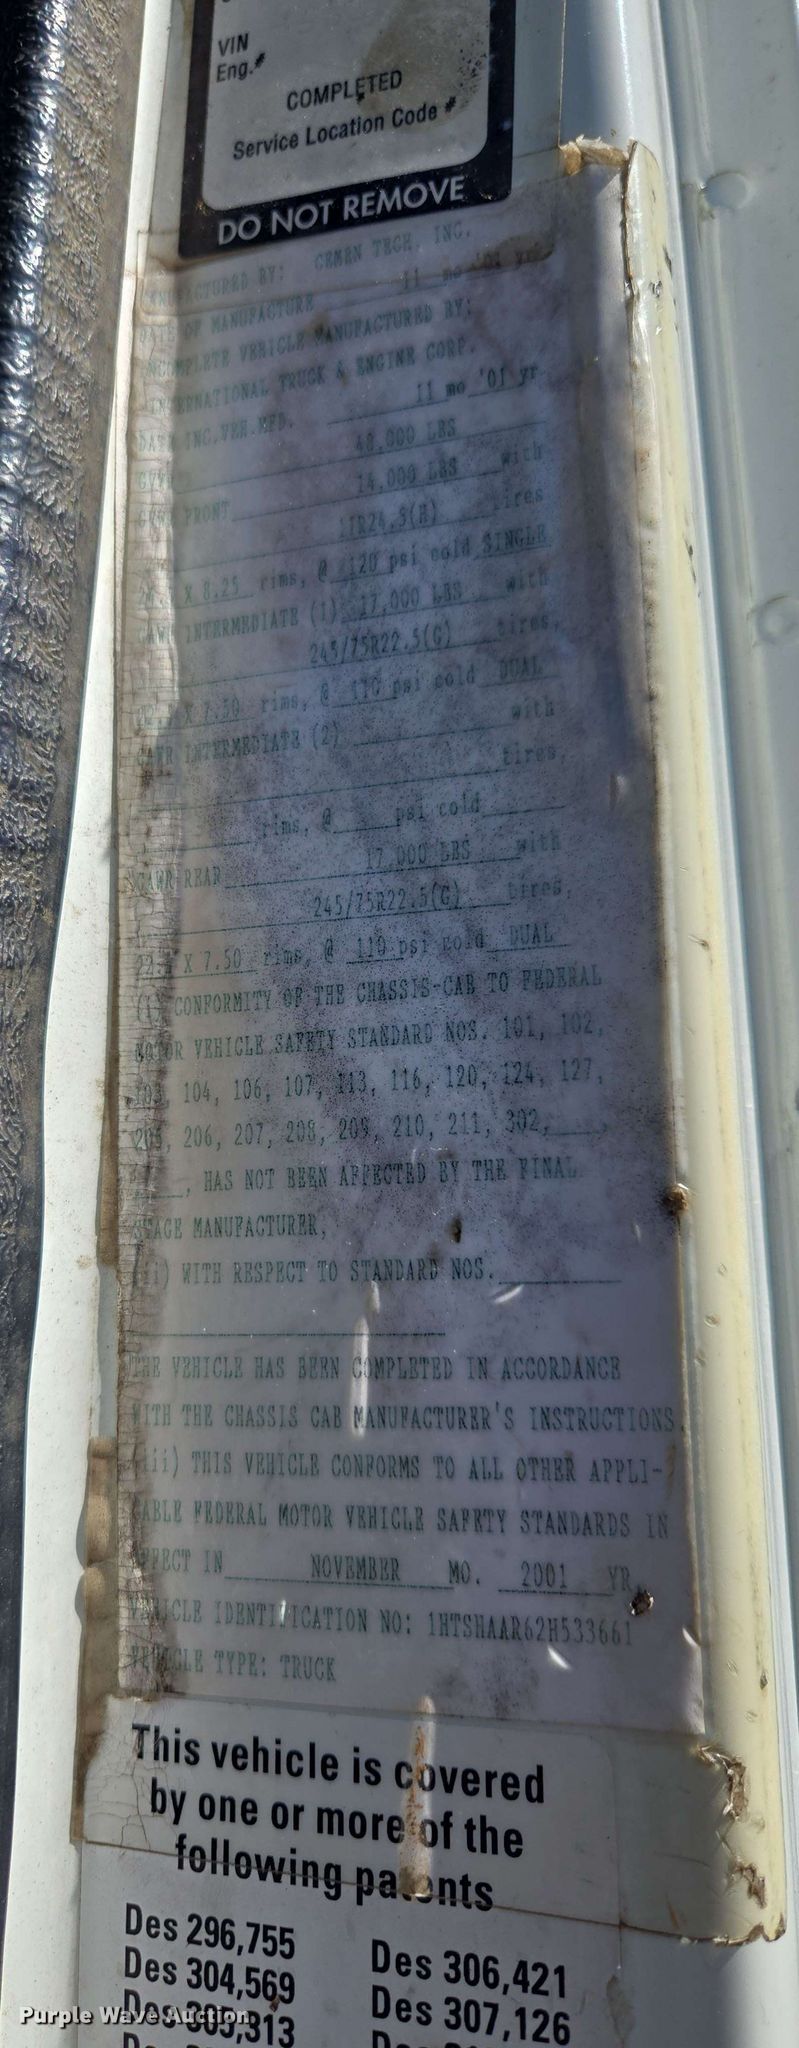 VIN
Eng.#
COMPLETED
Service Location Code #
DO NOT REMOVE
MANUFACTURED BY: CEMEN TECH, INC.
DATE OF MANUFACTURE 11 mo '01 yr
INCOMPLETE VEHICLE MANUFACTURED BY:
INTERNATIONAL TRUCK & ENGINE CORP.
DATE INC.VEH.MFD. 11 mo '01 yr
GVWR 48,000 LBS
GAWR FRONT 14,000 LBS with
11R24.5(H) tires
X 8.25 rims, @ 120 psi cold SINGLE
GAWR INTERMEDIATE (1) 17,000 LBS with
245/75R22.5(G) tires,
22.5 X 7.50 rims, @ 110 psi cold DUAL
GAWR INTERMEDIATE (2) with
tires,
rims, @ psi cold
GAWR REAR 17,000 LBS with
245/75R22.5(G) tires,
22.5 X 7.50 rims, @ 110 psi cold DUAL
(i) CONFORMITY OF THE CHASSIS-CAB TO FEDERAL
MOTOR VEHICLE SAFETY STANDARD NOS. 101, 102,
103, 104, 106, 107, 113, 116, 120, 124, 127,
205, 206, 207, 208, 209, 210, 211, 302, ,
, HAS NOT BEEN AFFECTED BY THE FINAL
STAGE MANUFACTURER,
(ii) WITH RESPECT TO STANDARD NOS.
THE VEHICLE HAS BEEN COMPLETED IN ACCORDANCE
WITH THE CHASSIS CAB MANUFACTURER'S INSTRUCTIONS.
(iii) THIS VEHICLE CONFORMS TO ALL OTHER APPLI-
CABLE FEDERAL MOTOR VEHICLE SAFETY STANDARDS IN
EFFECT IN NOVEMBER MO. 2001 YR.
VEHICLE IDENTIFICATION NO: 1HTSHAAR62H533661
VEHICLE TYPE: TRUCK
This vehicle is covered
by one or more of the
following patents
Des 296,755 Des 306,421
Des 304,569 Des 307,126
Des 305,313
Purple Wave Auction